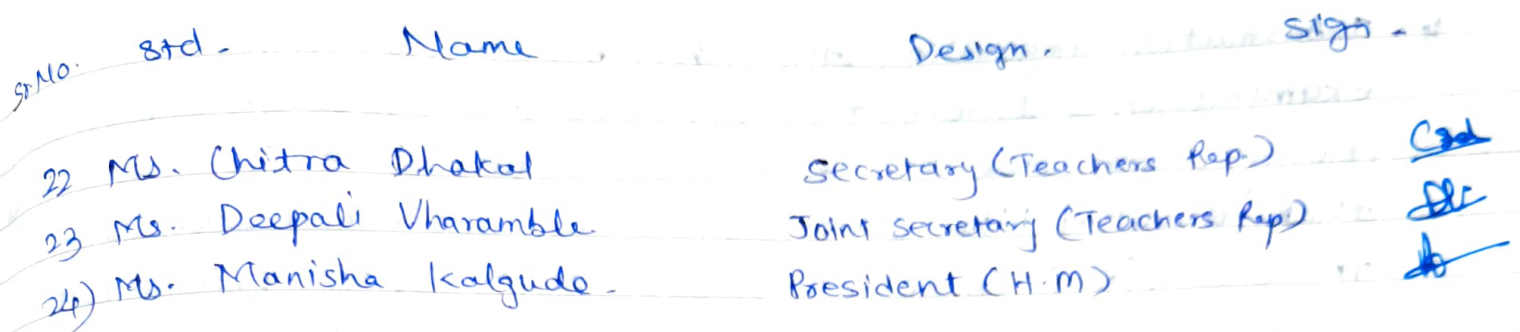 Sr No. Std. Name Design. Sign.
22 Ms. Chitra Dhakal Secretary (Teachers Rep.)
23 Ms. Deepali Vharamble Joint Secretary (Teachers Rep.)
24) Ms. Manisha Kalgude. President (H.M)